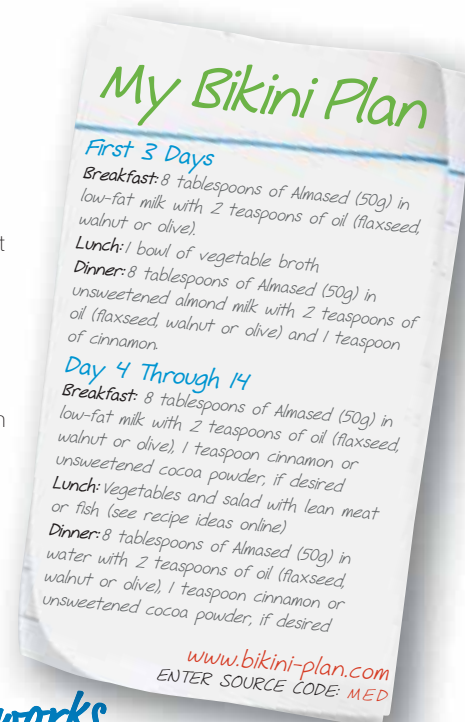 My Bikini Plan
First 3 Days
Breakfast: 8 tablespoons of Almased (50g) in
low-fat milk with 2 teaspoons of oil (flaxseed,
walnut or olive).
Lunch: 1 bowl of vegetable broth
Dinner: 8 tablespoons of Almased (50g) in
unsweetened almond milk with 2 teaspoons of
oil (flaxseed, walnut or olive) and 1 teaspoon
of cinnamon.
Day 4 Through 14
Breakfast: 8 tablespoons of Almased (50g) in
low-fat milk with 2 teaspoons of oil (flaxseed,
walnut or olive), 1 teaspoon cinnamon or
unsweetened cocoa powder, if desired
Lunch: Vegetables and salad with lean meat
or fish (see recipe ideas online)
Dinner: 8 tablespoons of Almased (50g) in
water with 2 teaspoons of oil (flaxseed,
walnut or olive), 1 teaspoon cinnamon or
unsweetened cocoa powder, if desired
www.bikini-plan.com
ENTER SOURCE CODE: MED
works